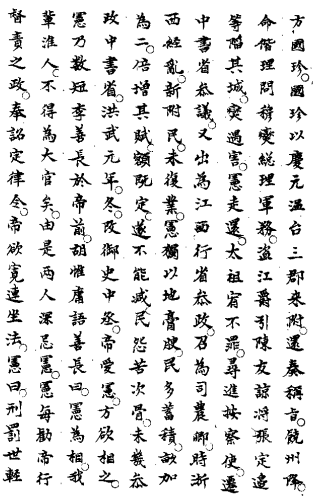 方國珍國珍以慶元溫台三郡來附還奏稱旨饒州降
命偕理問穆燮總理軍務盜江爵引陳友諒將張定邊
等陷其城燮遇害憲走還太祖宥不罪尋進按察使遷
中書省參議又出為江西行省參政召為司農卿時浙
西經亂新附民未復業憲獨以地膏腴民多蓄積畝加
為二倍增其賦額既定遂不能減民怨苦次骨未幾參
政中書省洪武元年冬改御史中丞帝愛憲方欲相之
憲乃數短李善長於帝前胡惟庸語善長曰憲為相我
輩淮人不得為大官矣由是兩人深忌憲憲每勸帝行
督責之政奉詔定律令帝欲寬連坐法憲曰刑罰世輕